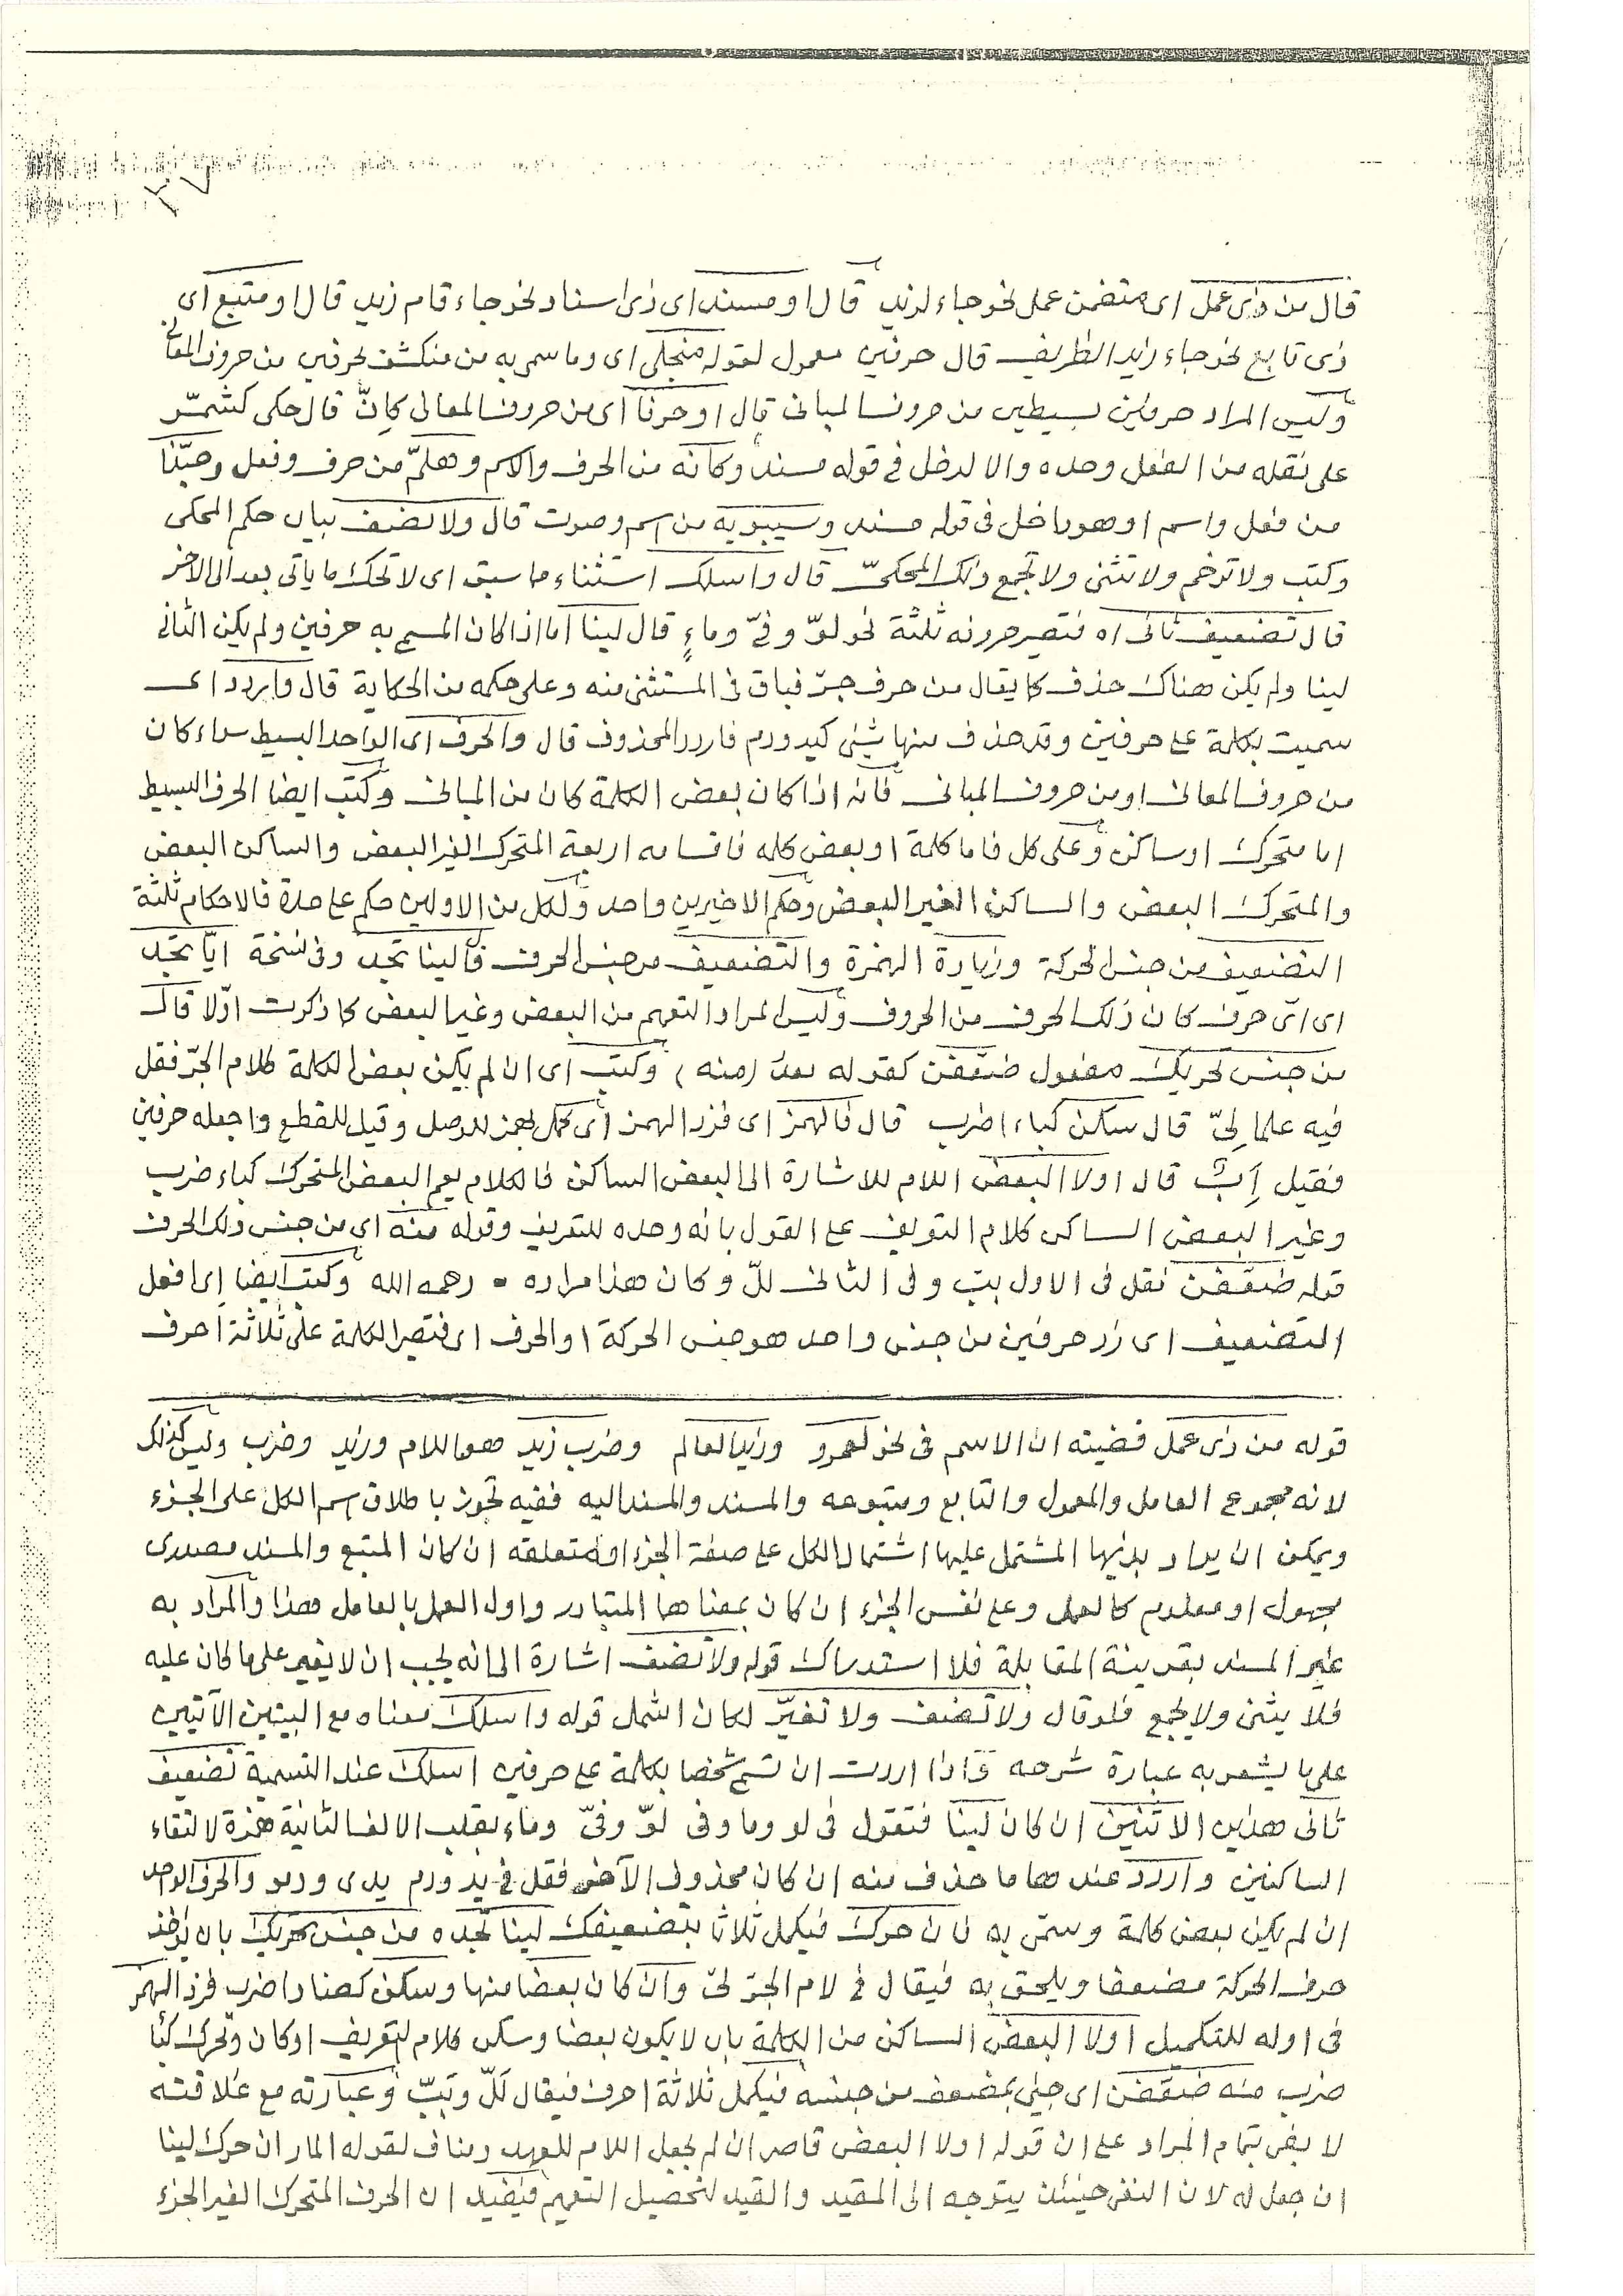 ٢٧
قال من ذى عمل اى متضمن عمل نحو جاء لزيد قال او مسند اى ذى اسناد نحو جاء قام زيد قال او متبع اى
ذى تابع نحو جاء زيد الظريف قال حرفين معمول لقوله منجلى اى وما سم به من منكشف بحرفين من حروف المعانى
وليس المراد حرفين بسيطين من حروف المبانى قال او حرفا اى من حروف المعانى كانّ قال حكى كشمّر
على نقله من الفعل وحده والا لدخل فى قوله مسند وكانه من الحرف والاسم وهلمّ من حرف وفعل وحبّذا
من فعل واسم او هو داخل فى قوله مسند وسيبويه من اسم وصوت قال ولا تضف بيان حكم المحكى
وكتب ولا ترخم ولا تثنى ولا تجمع ذلك المحكىّ قال واسلك استثناء ما سبق اى لا تحك ما يأتى بعد الى الاخر
قال تضعيف ثانى اه فتصير حروفه ثلثة نحو لوّ وفىّ وماءٍ قال لينا اما اذا كان المسمى به حرفين ولم يكن الثانى
لينا ولم يكن هناك حذف كما يقال من حرف جرّ فباق فى المستثنى منه وعلى حكمه من الحكاية قال واردد اى
سميت بكلمة على حرفين وقد حذف منها شئى كيد ودم فاردد المحذوف قال والحرف اى الواحد البسيط سواء كان
من حروف المعانى او من حروف المبانى فانه اذا كان بعض الكلمة كان من المبانى وكتب ايضا الحرف البسيط
اما متحرك او ساكن وعلى كل فاما كلمة او بعض كلمه فاقسامه اربعة المتحرك الغير البعض والساكن البعض
والمتحرك البعض والساكن الغير البعض وحكم الاخيرين واحد ولكل من الاولين حكم على حدة فالاحكام ثلثة
التضعيف من جنس الحركة وزيادة الهمزة والتضعيف من جنس الحرف قال لينا تجد وفى نسخة ايّا تجد
اى اىّ حرف كان ذلك الحرف من الحروف وليس المراد التعهم من البعض وغير البعض كما ذكرت اوّلا قال
من جنس تحريك مفعول ضعّفن كقوله بعد (منه) وكتب اى ان لم يكن بعض الكلمة كلام الجرّ فقل
فيه علما لِىّ قال سكن كباء اضرب قال فالهمز اى فزد الهمز اى كمل بهمز للوصل وقيل للقطع واجعله حرفين
فقيل اِبٌ قال او لا البعض اللام للاشارة الى البعض الساكن فالكلام يعم البعض المتحرك كباء ضرب
وغير البعض الساكن كلام التعريف على القول بانه وحده للتعريف وقوله منه اى من جنس ذلك الحرف
قوله ضعّفن نقل فى الاول ببّ وفى الثانى للّ وكان هذا مراده ٠ رحمه الله وكتب ايضا اى افعل
التضعيف اى زد حرفين من جنس واحد هو جنس الحركة او الحرف اى فتصير الكلمة على ثلاثة احرف
قوله من ذى عمل قضيته ان الاسم فى نحو لعمرو وزيد العالم وضرب زيد هو اللام وزيد وضرب وليس كذلك
لانه مجموع العامل والمعمول والتابع ومتبوعه والمسند والمسند اليه ففيه تجوز باطلاق اسم الكل على الجزء
ويمكن ان يراد بذيها المشتمل عليها اشتمال الكل على صفة الجزء او متعلقه ان كان المتبع والمسند مصدرى
مجهول او معلوم كالعمل وعلى نفس الجزء ان كان بمعناهما المتبادر واول العمل بالعامل هذا والمراد به
غير المسند بقرينة المقابلة فلا استدراك قوله ولا تضف اشارة الى انه يجب ان لا يغير على ما كان عليه
فلا يثنى ولا يجمع فلو قال ولا تضف ولا تغيّر لكان اشمل قوله واسلك معناه مع البيتين الآتيين
على ما يشعر به عبارة شرحه واذا اردت ان تسم شخصا بكلمة على حرفين اسلك عند التسمية تضعيف
ثانى هذين الاثنين ان كان لينا فتقول فى لو وما وفى لوّ وفىّ وماء بقلب الالف الثانية همزة لالتقاء
الساكنين واردد عندهما ما حذف منه ان كان محذوف الآخر فقل فى يد ودم يدى ودمو والحرف الواحد
ان لم يكن بعض كلمة وسمّى به فان حرك فيكمل ثلاثا بتضعيفك لينا تجده من جنس تحريك بان يؤخذ
حرف الحركة مضعفا ويلحق به فيقال فى لام الجرّ لىّ وان كان بعضا منها وسكن كضاد اضرب فزد الهمز
فى اوله للتكميل او لا البعض الساكن من الكلمة بان لا يكون بعضا وسكن كلام التعريف او كان وتحرك كبا
ضرب منه ضعّفن اى جئ بمضعف من جنسه فيكمل ثلاثة احرف فيقال للّ وببّ وعبارته مع غلاقته
لا يفى بتمام المراد على ان قوله او لا البعض قاصر ان لم يجعل اللام للعهد ومناف لقوله المار ان حرك لينا
ان جعل له لان النفى حينئذ يتوجه الى المقيد والقيد لتحصيل التعهيم فيفيد ان الحرف المتحرك الغير الجزء